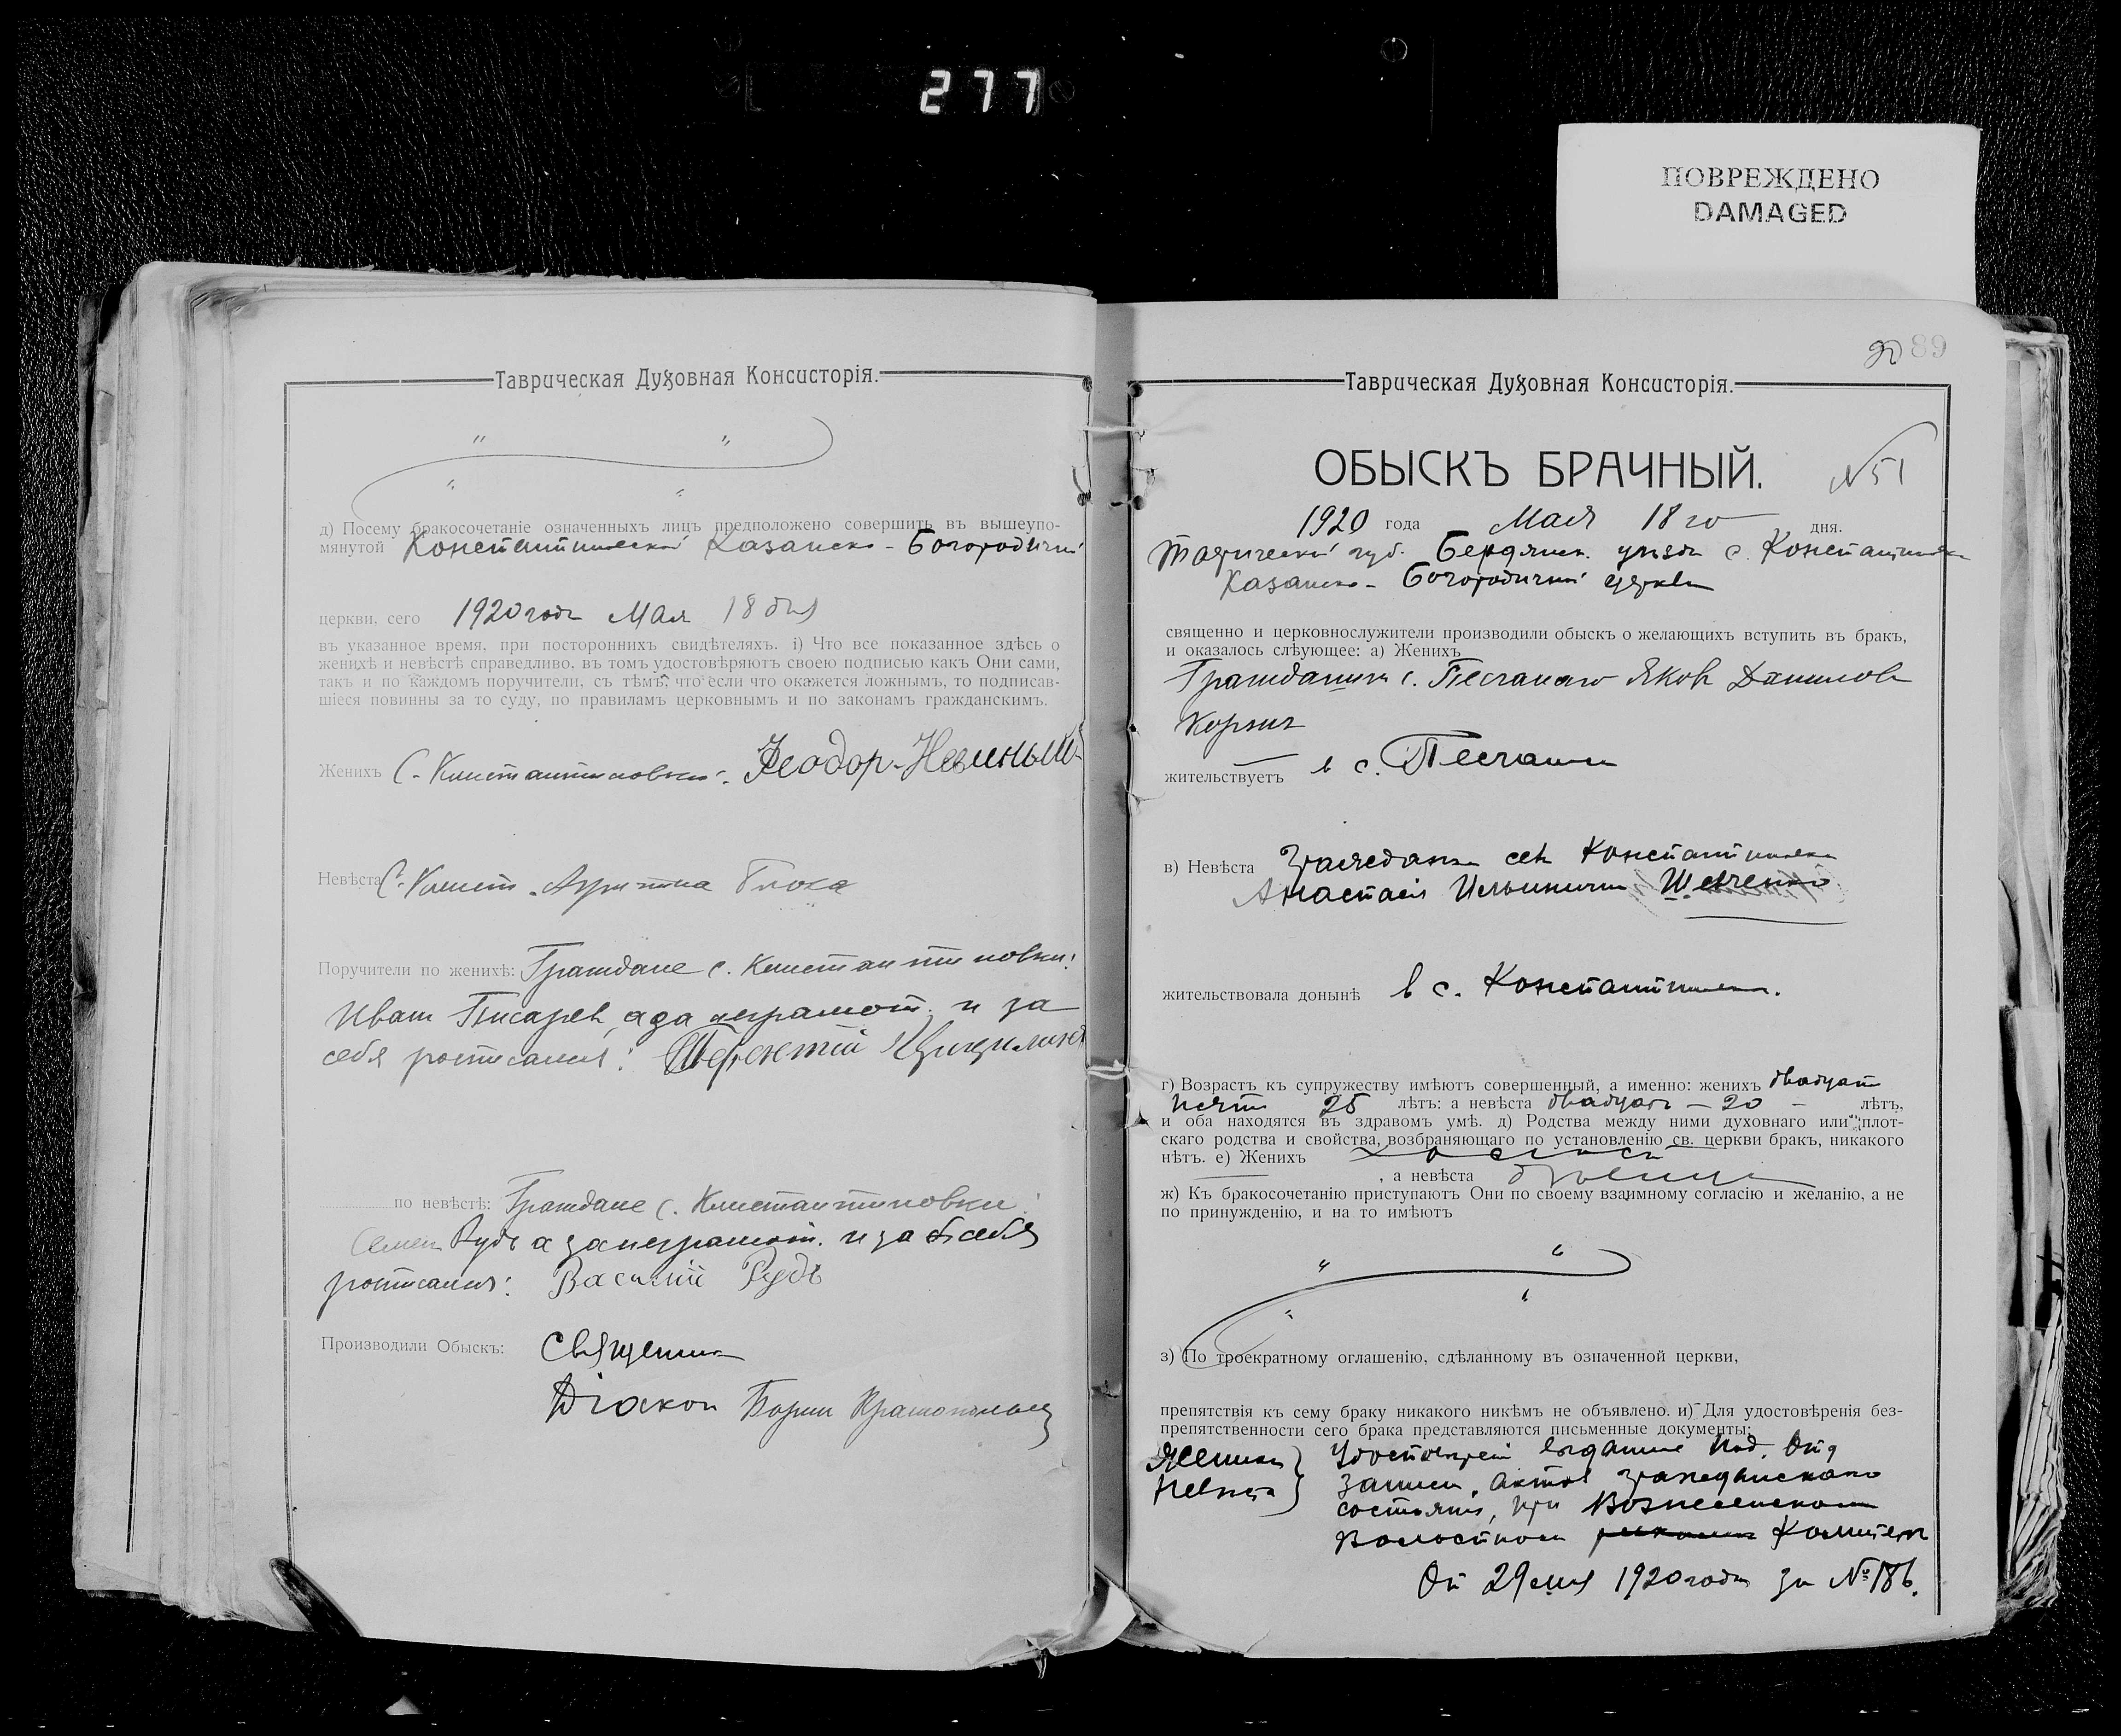 277
ПОВРЕЖДЕНО
DAMAGED
Таврическая Духовная Консисторія.
" "
" "
д) Посему бракосочетаніе означенныхъ лицъ предположено совершить въ вышеупо-
мянутой Константиновской Казанско-Богородичной
церкви, сего 1920 года Мая 18 дня
въ указанное время, при постороннихъ свидѣтеляхъ. i) Что все показанное здѣсь о
женихѣ и невѣстѣ справедливо, въ томъ удостовѣряютъ своею подписью какъ Они сами,
такъ и по каждомъ поручители, съ тѣмъ, что если что окажется ложнымъ, то подписав-
шіеся повинны за то суду, по правиламъ церковнымъ и по законамъ гражданскимъ.
Женихъ С. Константиновки: Феодор
Невѣста С. Конст.
Поручители по женихѣ: Граждане с. Константиновки:
Иван Писарев, а за неграмот. и за
себя росписался: Терентій
по невѣстѣ: Граждане с. Константиновки:
Семен Рудь а за неграмот. и за себя
росписался: Василій Рудь
Производили Обыскъ: Священник
Діакон Борис
Таврическая Духовная Консисторія.
90 89
ОБЫСКЪ БРАЧНЫЙ. N51
1920 года Мая 18го дня.
Таврической губ. Бердянск. уѣзда с. Константиновки
Казанско-Богородичной церкви
священно и церковнослужители производили обыскъ о желающихъ вступить въ бракъ,
и оказалось слѣующее: а) Женихъ
Гражданин с. Песчаного Яков Данилов
жительствуетъ в с. Песчаном
в) Невѣста Гражданка села Константиновки
Анастасія Ильинична Шевченко
жительствовала донынѣ в с. Константиновке.
г) Возрастъ къ супружеству имѣютъ совершенный, а именно: женихъ двадцать
пять 25 лѣтъ: а невѣста двадцать - 20 - лѣтъ,
и оба находятся въ здравомъ умѣ. д) Родства между ними духовнаго или плот-
скаго родства и свойства, возбраняющаго по установленію св. церкви бракъ, никакого
нѣтъ. е) Женихъ холост
, а невѣста девица
ж) Къ бракосочетанію приступаютъ Они по своему взаимному согласію и желанію, а не
по принужденію, и на то имѣютъ
" "
" "
з) По троекратному оглашенію, сдѣланному въ означенной церкви,
препятствія къ сему браку никакого никѣмъ не объявлено. и) Для удостовѣренія без-
препятственности сего брака представляются письменные документы:
Жениха Удостоверение выданное Под. Отд
Невеста записи актов гражданского
состояния, при Вознесенском
Волостном Комитете
От 29 мая 1920 года за № 186.